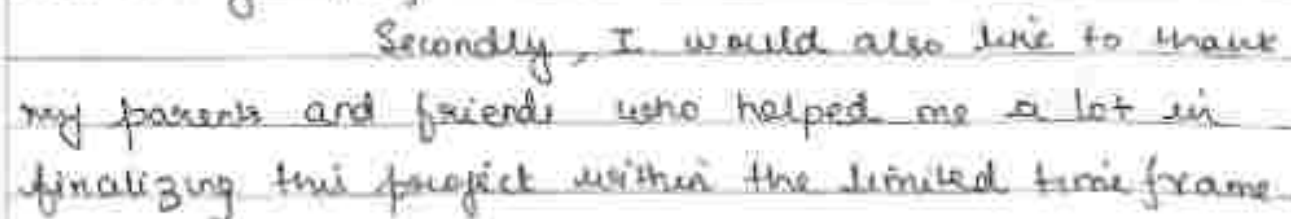 Secondly, I would also like to thank
my parents and friends who helped me a lot in
finalizing this project within the limited time frame